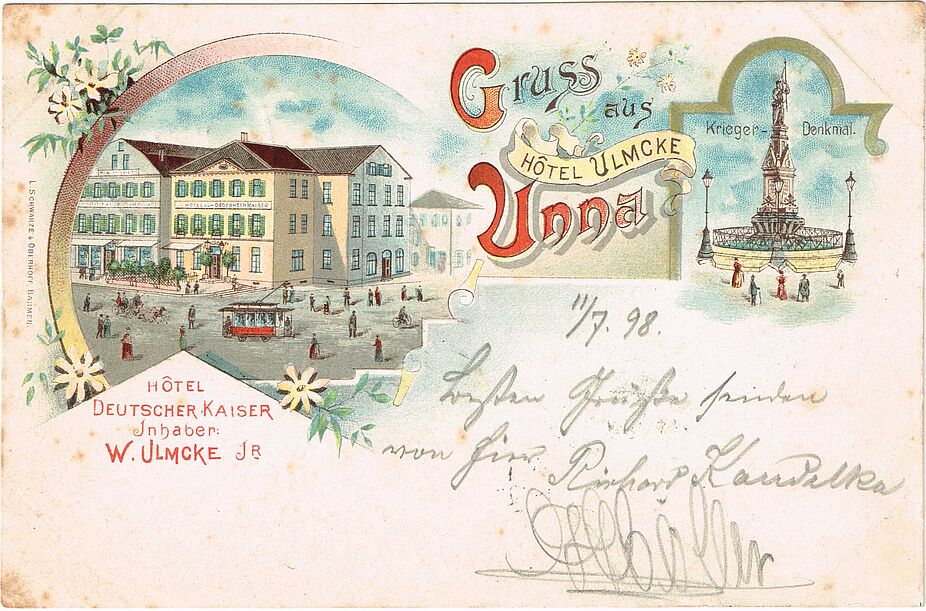 Gruss
aus
HÔTEL ULMCKE
Unna
Krieger-Denkmal.
HOTEL ZUM DEUTSCHEN KAISER
L. SCHWARZE & OBERHOFF, BARMEN
HÔTEL
DEUTSCHER KAISER
Inhaber:
W. ULMCKE JR
11/7. 98.
Besten Grüße senden
von hier Richard Kandelka